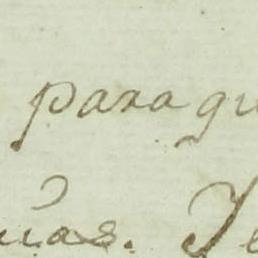 para qu
uas. Te